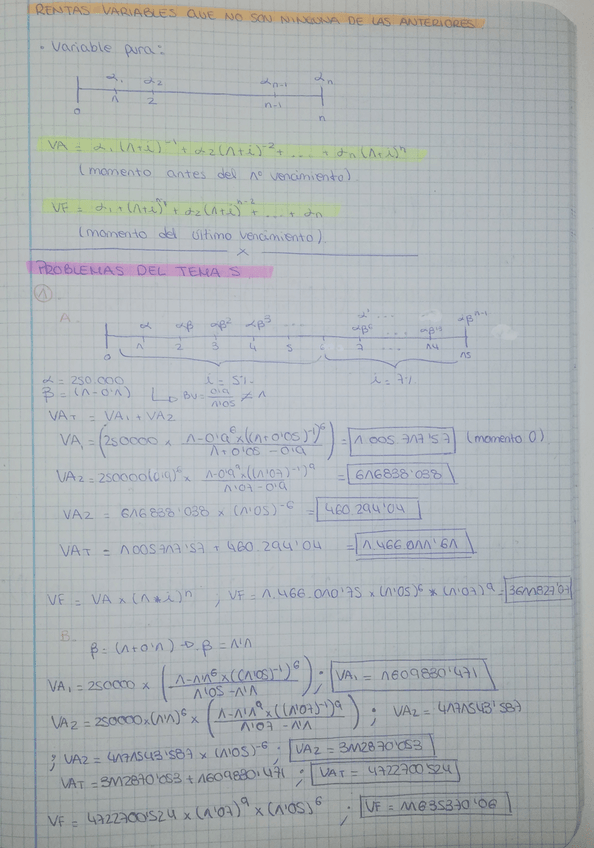 RENTAS VARIABLES QUE NO SON NINGUNA DE LAS ANTERIORES
• Variable pura:
α1 α2 αn-1 αn
0 1 2 n-1 n
VA = α1(1+i)^-1 + α2(1+i)^-2 + .... + αn(1+i)^n
(momento antes del 1º vencimiento)
VF = α1+(1+i)^n-1 + α2(1+i)^n-2 + .... + αn
(momento del último vencimiento)
x
PROBLEMAS DEL TEMA 5
1
A.
α αβ αβ² αβ³ ... αβ^6 ... αβ^n-1
0 1 2 3 4 5 7 ... 14 15
i = 5% i = 7%
α = 250.000
β = (1-0'1) ↳ BV = 0'9/1'05 ≠ 1
VAT = VA1 + VA2
VA1 = (250000 × (1-0'9^6 × ((1+0'05)^-1)^6)/(1+0'05-0'9)) = 1.005.717'57 (momento 0)
VA2 = 250000(0'9)^6 × (1-0'9^9 × ((1'07)^-1)^9)/(1'07-0'9) = 616838'038
VA2 = 616838'038 × (1'05)^-6 = 460.294'04
VAT = 1005717'57 + 460.294'04 = 1.466.011'61
VF = VA × (1+i)^n ; VF = 1.466.010'75 × (1'05)^6 × (1'07)^9 = 3611827'07
B.
β = (1+0'1) → β = 1'1
VA1 = 250000 × ((1-1'1^6 × ((1'05)^-1)^6)/(1'05-1'1)) ; VA1 = 1609830'471
VA2 = 250000 × (1'1)^6 × ((1-1'1^9 × ((1'07)^-1)^9)/(1'07-1'1)) ; VA2 = 4171543'587
; VA2 = 4171543'587 × (1'05)^-6 ; VA2 = 3112870'053
VAT = 3112870'053 + 1609830'471 ; VAT = 4722700'524
VF = 4722700'524 × (1'07)^9 × (1'05)^6 ; VF = 11635370'06